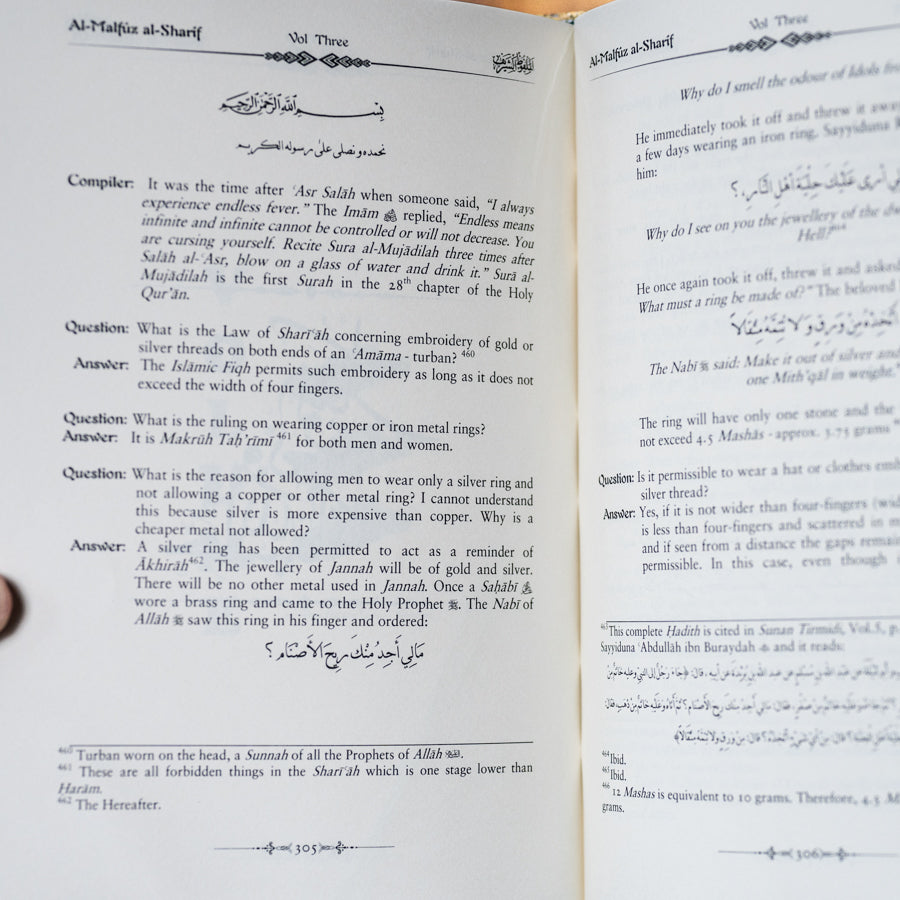 Al-Malfūz al-Sharīf
Vol Three
بسم الله الرحمن الرحيم
نحمده و نصلى على رسوله الكريم
Compiler: It was the time after ʿAsr Salāh when someone said, “I always
experience endless fever.” The Imām replied, “Endless means
infinite and infinite cannot be controlled or will not decrease. You
are cursing yourself. Recite Sura al-Mujādilah three times after
Salāh al-ʿAsr, blow on a glass of water and drink it.” Surā al-
Mujādilah is the first Surah in the 28th chapter of the Holy
Qur’ān.
Question: What is the Law of Sharīʿah concerning embroidery of gold or
silver threads on both ends of an ʿAmāma - turban? 460
Answer: The Islāmic Fiqh permits such embroidery as long as it does not
exceed the width of four fingers.
Question: What is the ruling on wearing copper or iron metal rings?
Answer: It is Makrūh Taḥrīmī 461 for both men and women.
Question: What is the reason for allowing men to wear only a silver ring and
not allowing a copper or other metal ring? I cannot understand
this because silver is more expensive than copper. Why is a
cheaper metal not allowed?
Answer: A silver ring has been permitted to act as a reminder of
Ākhirāh462. The jewellery of Jannah will be of gold and silver.
There will be no other metal used in Jannah. Once a Saḥābī
wore a brass ring and came to the Holy Prophet ﷺ. The Nabī of
Allāh ﷺ saw this ring in his finger and ordered:
مَالِي أَجِدُ مِنْكَ رِيحَ الأَصْنَامِ ؟
460 Turban worn on the head, a Sunnah of all the Prophets of Allāh
461 These are all forbidden things in the Sharīʿah which is one stage lower than
Harām.
462 The Hereafter.
305
Al-Malfūz al-Sharīf
Vol Three
Why do I smell the odour of Idols
He immediately took it off and threw it
a few days wearing an iron ring. Sayyiduna
him:
أرى عَلَيْكَ حِلْيَةَ أَهْلِ النَّارِ ؟
Why do I see on you the jewellery of the
Hell?
He once again took it off, threw it and asked
What must a ring be made of?” The beloved
اتَّخِذْهُ مِنْ وَرِقٍ وَلا تُتِمَّهُ مِثْقَالاً
The Nabī ﷺ said: Make it out of silver and
one Mith’qāl in weight.”
The ring will have only one stone and the
not exceed 4.5 Mashās - approx. 3.75 grams
Question: Is it permissible to wear a hat or clothes
silver thread?
Answer: Yes, if it is not wider than four-fingers
is less than four-fingers and scattered in
and if seen from a distance the gaps
permissible. In this case, even though
463 This complete Hadith is cited in Sunan Tirmidi, Vol.5,
Sayyiduna ʿAbdullāh ibn Buraydah and it reads:
464 Ibid.
465 Ibid.
466 12 Mashas is equivalent to 10 grams. Therefore, 4.5
grams.
306